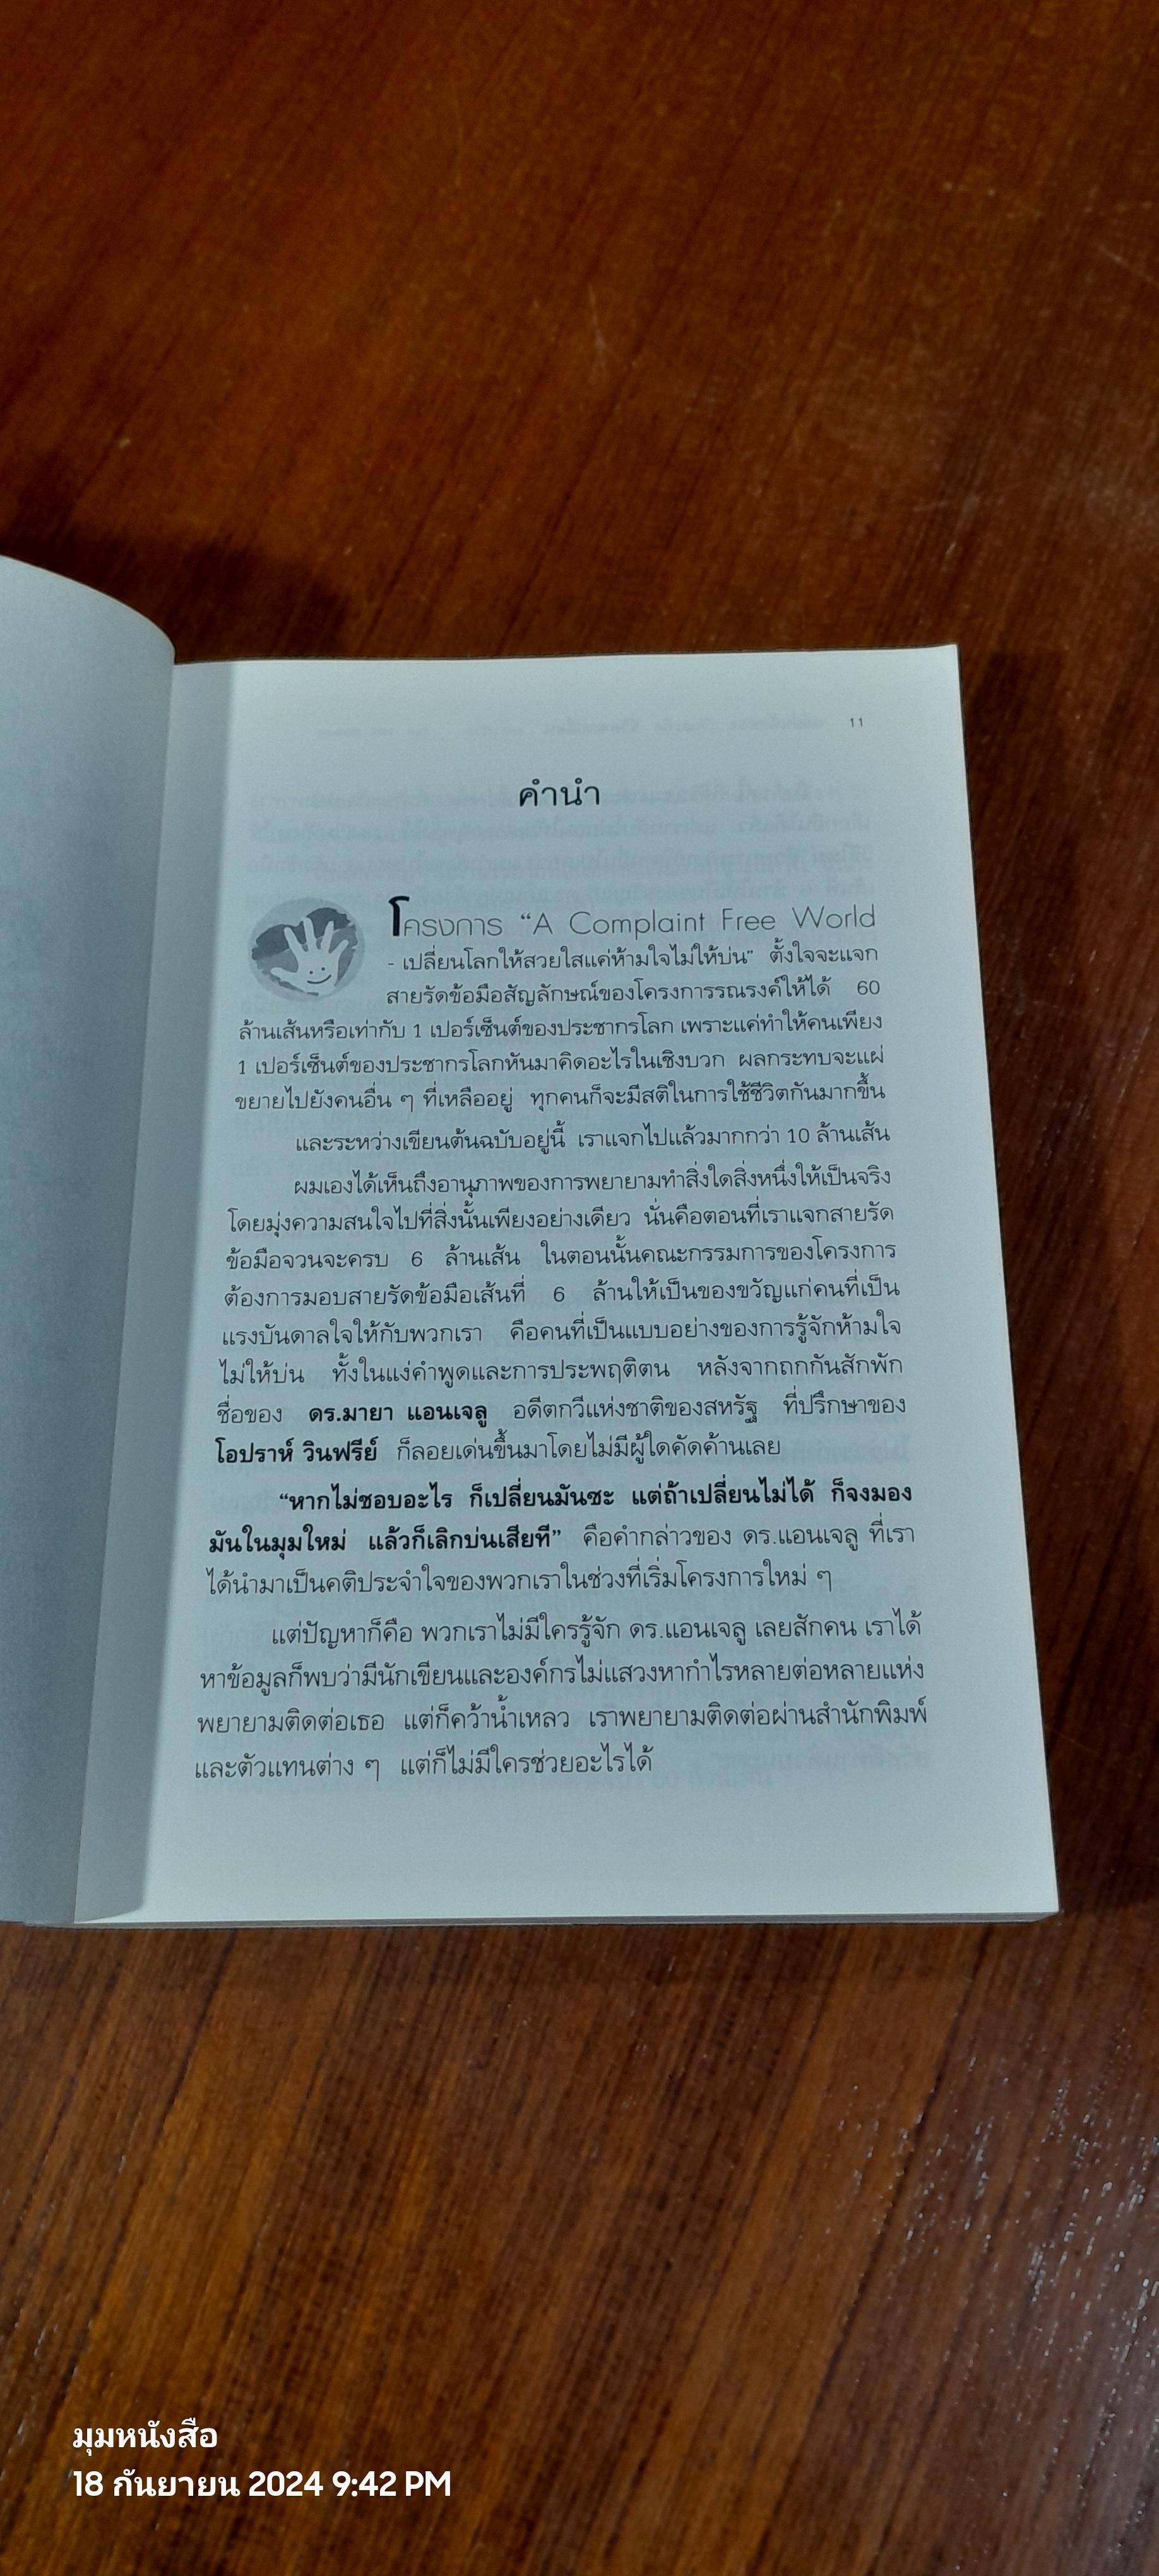 11
คำนำ
โครงการ “A Complaint Free World
- เปลี่ยนโลกให้สวยใสแค่ห้ามใจไม่ให้บ่น” ตั้งใจจะแจก
สายรัดข้อมือสัญลักษณ์ของโครงการรณรงค์ให้ได้ 60
ล้านเส้นหรือเท่ากับ 1 เปอร์เซ็นต์ของประชากรโลก เพราะแค่ทำให้คนเพียง
1 เปอร์เซ็นต์ของประชากรโลกหันมาคิดอะไรในเชิงบวก ผลกระทบจะแผ่
ขยายไปยังคนอื่น ๆ ที่เหลืออยู่ ทุกคนก็จะมีสติในการใช้ชีวิตกันมากขึ้น
และระหว่างเขียนต้นฉบับอยู่นี้ เราแจกไปแล้วมากกว่า 10 ล้านเส้น
ผมเองได้เห็นถึงอานุภาพของการพยายามทำสิ่งใดสิ่งหนึ่งให้เป็นจริง
โดยมุ่งความสนใจไปที่สิ่งนั้นเพียงอย่างเดียว นั่นคือตอนที่เราแจกสายรัด
ข้อมือจวนจะครบ 6 ล้านเส้น ในตอนนั้นคณะกรรมการของโครงการ
ต้องการมอบสายรัดข้อมือเส้นที่ 6 ล้านให้เป็นของขวัญแก่คนที่เป็น
แรงบันดาลใจให้กับพวกเรา คือคนที่เป็นแบบอย่างของการรู้จักห้ามใจ
ไม่ให้บ่น ทั้งในแง่คำพูดและการประพฤติตน หลังจากถกกันสักพัก
ชื่อของ ดร.มายา แอนเจลู อดีตกวีแห่งชาติของสหรัฐ ที่ปรึกษาของ
โอปราห์ วินฟรีย์ ก็ลอยเด่นขึ้นมาโดยไม่มีผู้ใดคัดค้านเลย
“หากไม่ชอบอะไร ก็เปลี่ยนมันซะ แต่ถ้าเปลี่ยนไม่ได้ ก็จงมอง
มันในมุมใหม่ แล้วก็เลิกบ่นเสียที” คือคำกล่าวของ ดร.แอนเจลู ที่เรา
ได้นำมาเป็นคติประจำใจของพวกเราในช่วงที่เริ่มโครงการใหม่ ๆ
แต่ปัญหาก็คือ พวกเราไม่มีใครรู้จัก ดร.แอนเจลู เลยสักคน เราได้
หาข้อมูลก็พบว่ามีนักเขียนและองค์กรไม่แสวงหากำไรหลายต่อหลายแห่ง
พยายามติดต่อเธอ แต่ก็คว้าน้ำเหลว เราพยายามติดต่อผ่านสำนักพิมพ์
และตัวแทนต่าง ๆ แต่ก็ไม่มีใครช่วยอะไรได้
มุมหนังสือ
18 กันยายน 2024 9:42 PM